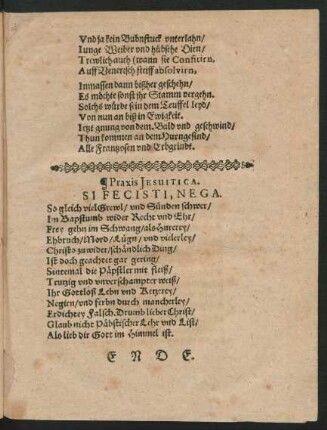 Vnd ja kein Bubnstuck vnterlahn/
Junge Weiber vnd hübsche Dien/
Trewlich auch (wann sie Confitirn.
Auff Venerisch steiff absolvirn.
Inmassen dann bißher geschehn/
Es möchte sonst ihr Stamm vergehn.
Solchs würde sein dem Teuffel leyd/
Von nun an biß in Ewigkeit.
Jetzt gnung von dem. Bald vnd geschwind/
Thun kommen an dem Hurngesind/
Alle Frantzosen vnd Erbgrindt.
¶ Praxis JESUITICA.
SI FECISTI, NEGA.
So gleich viel Grewl/ vnd Sünden schwer/
Im Bapstumb wider Recht vnd Ehr/
Frey gehn im Schwang/ als Hurerey/
Ehbruch/ Mord/ Lügn/ vnd vielerley/
Christo zu wider/ schändlich Ding/
Ist doch geachtet gar gering/
Sintemal die Päpstler mit fleiß/
Trutzig vnd vnverschampter weiß/
Ihr Gottloß Lebn vnd Ketzerey/
Negirn/ vnd ferbn durch mancherley/
Erdichtey Falsch. Drumb lieber Christ/
Glaub nicht Päbstischer Lehr vnd List/
Als lieb dir Gott im Himmel ist.
E N D E.